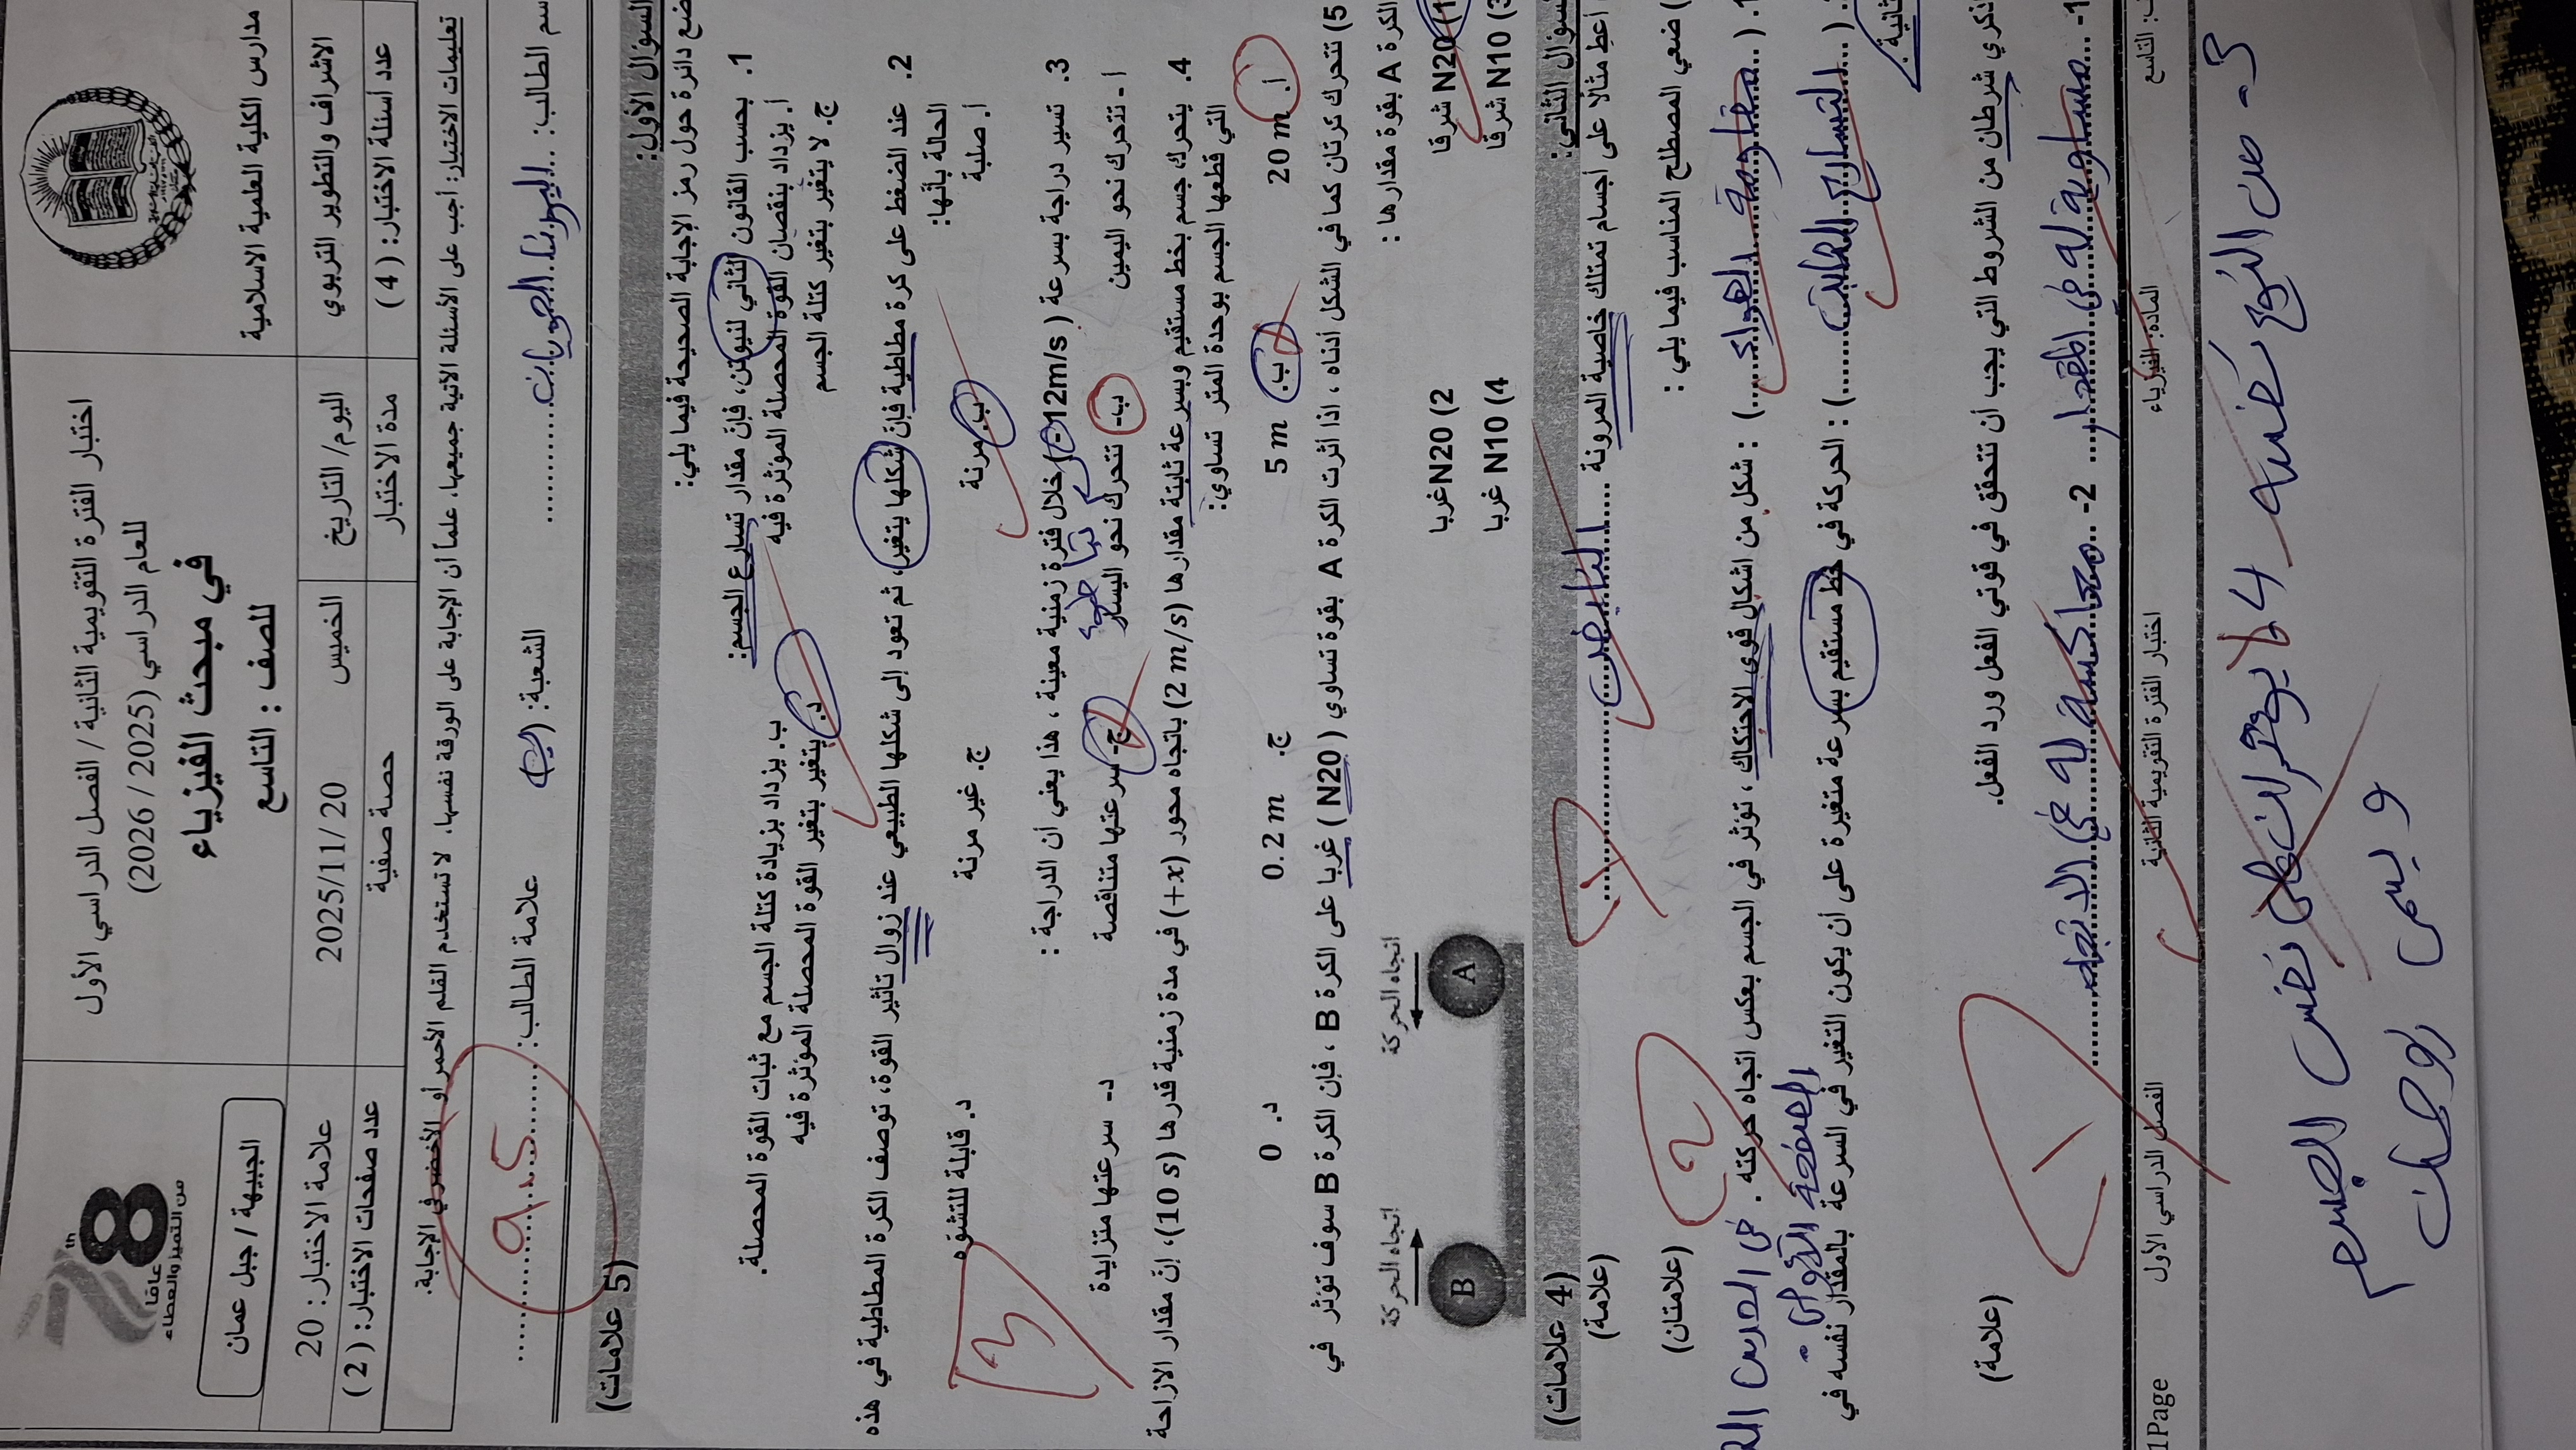 مدارس الكلية العلمية الاسلامية
اختبار الفترة التقويمية الثانية / الفصل الدراسي الأول
للعام الدراسي (2025 / 2026)
في مبحث الفيزياء
للصف : التاسع
78 th
عامًا
من التميز والعطاء
الجبيهة / جبل عمان
الاشراف والتطوير التربوي
اليوم/ التاريخ
الخميس
2025/11/ 20
علامة الاختبار: 20
عدد أسئلة الاختبار: ( 4 )
مدة الاختبار
حصة صفية
عدد صفحات الاختبار: ( 2 )
تعليمات الاختبار: أجب على الأسئلة الآتية جميعها. علماً أن الإجابة على الورقة نفسها. لا تستخدم القلم الأحمر أو الأخضر في الإجابة.
سم الطالب:
الشعبة: (ب)
علامة الطالب: 9.5
السؤال الأول:
(5 علامات)
ضع دائرة حول رمز الإجابة الصحيحة فيما يلي:
1. بحسب القانون الثاني لنيوتن، فإن مقدار تسارع الجسم:
أ. يزداد بنقصان القوة المحصلة المؤثرة فيه
ب. يزداد بزيادة كتلة الجسم مع ثبات القوة المحصلة.
ج. لا يتغير بتغير كتلة الجسم
د. يتغير بتغير القوة المحصلة المؤثرة فيه
2. عند الضغط على كرة مطاطية فإن شكلها يتغير، ثم تعود إلى شكلها الطبيعي عند زوال تأثير القوة، توصف الكرة المطاطية في هذه
الحالة بأنها:
أ. صلبة
ب. مرنة
ج. غير مرنة
د. قابلة للتشوّه
3
3. تسير دراجة بسرعة (12m/s-) خلال فترة زمنية معينة ، هذا يعني أن الدراجة :
أ - تتحرك نحو اليمين
ب- تتحرك نحو اليسار
ج- سرعتها متناقصة
د- سرعتها متزايدة
4. يتحرك جسم بخط مستقيم وبسرعة ثابتة مقدارها (2 m/s) باتجاه محور (+x) في مدة زمنية قدرها (10 s)، إنّ مقدار الازاحة
التي قطعها الجسم بوحدة المتر تساوي:
أ. 20 m
ب. 5 m
ج. 0.2 m
د. 0
5) تتحرك كرتان كما في الشكل أدناه ، اذا أثرت الكرة A بقوة تساوي ( N20 ) غربا على الكرة B ، فإن الكرة B سوف تؤثر في
الكرة A بقوة مقدارها :
1) N20 شرقا
2) N20غربا
3) N10 شرقا
4) N10 غربا
اتجاه الحركة
اتجاه الحركة
A
B
السؤال الثاني:
(4 علامات)
أعطِ مثالًا على أجسام تمتلك خاصية المرونة .... النابض
(علامة)
1
) ضعي المصطلح المناسب فيما يلي :
(علامتان)
2
1. (... مقاومة الهواء ...) : شكل من اشكال قوى الاحتكاك ، تؤثر في الجسم بعكس اتجاه حركته .
(التسارع الثابت) : الحركة في خط مستقيم بسرعة متغيرة على أن يكون التغير في السرعة بالمقدار نفسه في
ثانية.
ذكري شرطان من الشروط التي يجب أن تتحقق في قوتي الفعل ورد الفعل.
(علامة)
1- ... مساوية له في المقدار ... 2- .. معاكسة له في الاتجاه
1
التاسع
المادة: الفيزياء
اختبار الفترة التقويمية الثانية
الفصل الدراسي الأول
1Page
3- من النوع نفسه 4 لا يؤثران على نفس الجسم